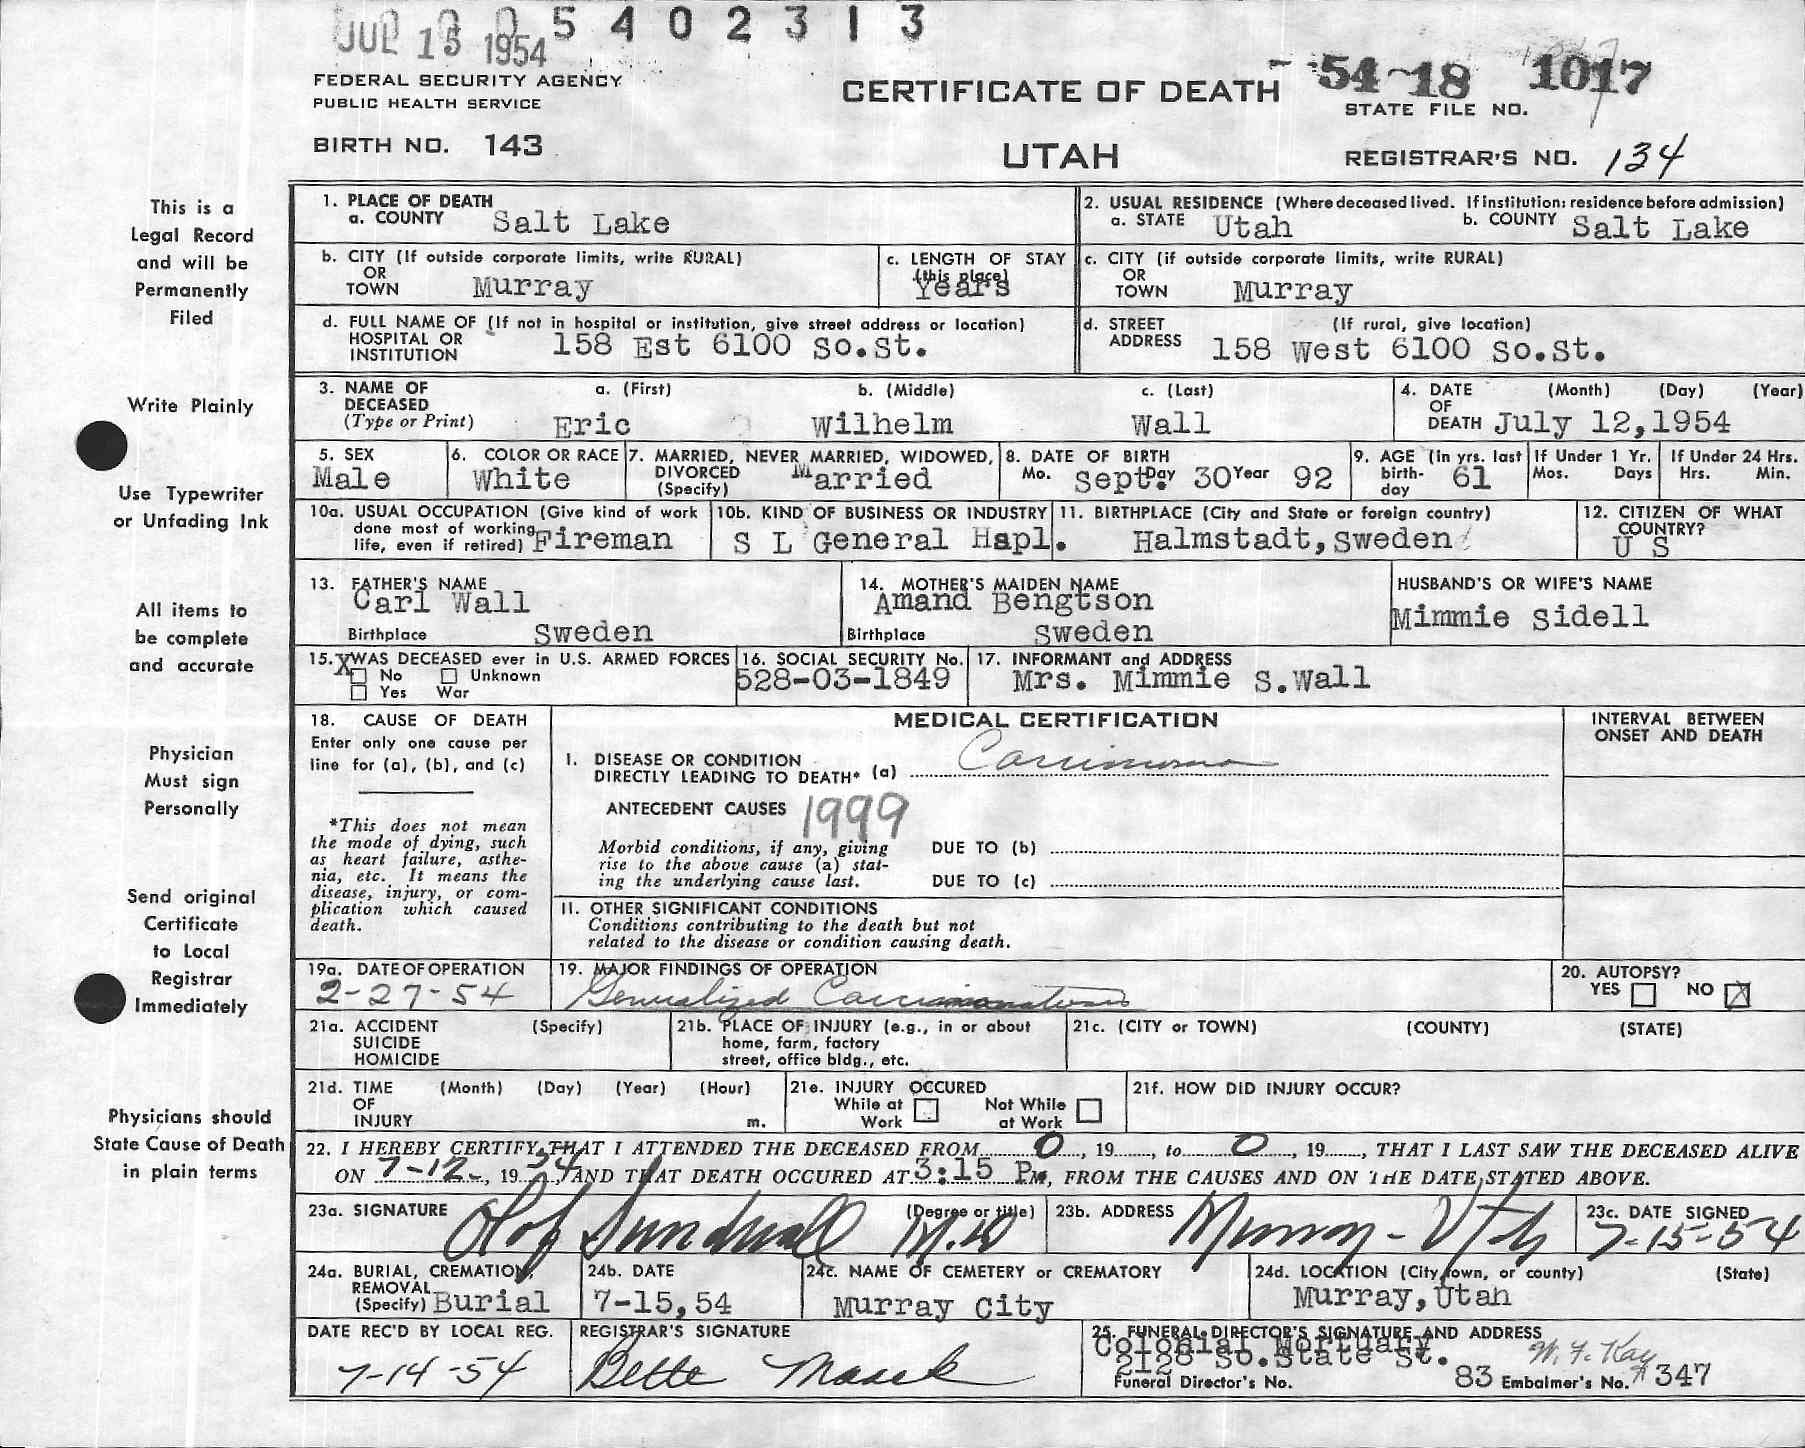 JUL 15 1954
0 0 5 4 0 2 3 1 3
FEDERAL SECURITY AGENCY
PUBLIC HEALTH SERVICE
BIRTH NO. 143
CERTIFICATE OF DEATH
UTAH
54-18 1017
STATE FILE NO.
REGISTRAR'S NO. 134
This is a
Legal Record
and will be
Permanently
Filed
Write Plainly
Use Typewriter
or Unfading Ink
All items to
be complete
and accurate
Physician
Must sign
Personally
Send original
Certificate
to Local
Registrar
Immediately
Physicians should
State Cause of Death
in plain terms
1. PLACE OF DEATH
a. COUNTY Salt Lake
2. USUAL RESIDENCE (Where deceased lived. If institution: residence before admission)
a. STATE Utah b. COUNTY Salt Lake
b. CITY (If outside corporate limits, write RURAL)
OR
TOWN Murray
c. LENGTH OF STAY
(this place)
Years
c. CITY (if outside corporate limits, write RURAL)
OR
TOWN Murray
d. FULL NAME OF (If not in hospital or institution, give street address or location)
HOSPITAL OR
INSTITUTION 158 Est 6100 So.St.
d. STREET (If rural, give location)
ADDRESS 158 West 6100 So.St.
3. NAME OF a. (First) b. (Middle) c. (Last)
DECEASED
(Type or Print) Eric Wilhelm Wall
4. DATE (Month) (Day) (Year)
OF
DEATH July 12,1954
5. SEX
Male
6. COLOR OR RACE
White
7. MARRIED, NEVER MARRIED, WIDOWED,
DIVORCED Married
(Specify)
8. DATE OF BIRTH
Mo. Sept. Day 30 Year 92
9. AGE (In yrs. last
birth-
day 61
If Under 1 Yr.
Mos. Days
If Under 24 Hrs.
Hrs. Min.
10a. USUAL OCCUPATION (Give kind of work
done most of working
life, even if retired) Fireman
10b. KIND OF BUSINESS OR INDUSTRY
S L General Hspl.
11. BIRTHPLACE (City and State or foreign country)
Halmstadt,Sweden
12. CITIZEN OF WHAT
COUNTRY?
U S
13. FATHER'S NAME
Carl Wall
Birthplace Sweden
14. MOTHER'S MAIDEN NAME
Amand Bengtson
Birthplace Sweden
HUSBAND'S OR WIFE'S NAME
Mimmie Sidell
15. WAS DECEASED ever in U.S. ARMED FORCES
X No Unknown
Yes War
16. SOCIAL SECURITY No.
528-03-1849
17. INFORMANT and ADDRESS
Mrs. Mimmie S.Wall
18. CAUSE OF DEATH
Enter only one cause per
line for (a), (b), and (c)
*This does not mean
the mode of dying, such
as heart failure, asthe-
nia, etc. It means the
disease, injury, or com-
plication which caused
death.
MEDICAL CERTIFICATION
INTERVAL BETWEEN
ONSET AND DEATH
I. DISEASE OR CONDITION
DIRECTLY LEADING TO DEATH* (a) Carcinoma
ANTECEDENT CAUSES 1999
Morbid conditions, if any, giving
rise to the above cause (a) stat-
ing the underlying cause last.
DUE TO (b)
DUE TO (c)
II. OTHER SIGNIFICANT CONDITIONS
Conditions contributing to the death but not
related to the disease or condition causing death.
19a. DATE OF OPERATION
2-27-54
19. MAJOR FINDINGS OF OPERATION
Generalized Carcinomatosis
20. AUTOPSY?
YES NO X
21a. ACCIDENT (Specify)
SUICIDE
HOMICIDE
21b. PLACE OF INJURY (e.g., in or about
home, farm, factory
street, office bldg., etc.
21c. (CITY or TOWN) (COUNTY) (STATE)
21d. TIME (Month) (Day) (Year) (Hour)
OF
INJURY m.
21e. INJURY OCCURED
While at Not While
Work at Work
21f. HOW DID INJURY OCCUR?
22. I HEREBY CERTIFY, THAT I ATTENDED THE DECEASED FROM 0, 19....., to 0, 19....., THAT I LAST SAW THE DECEASED ALIVE
ON 7-12-, 1954, AND THAT DEATH OCCURED AT 3:15 Pm, FROM THE CAUSES AND ON THE DATE STATED ABOVE.
23a. SIGNATURE (Degree or title)
Olof Sundwall M.D
23b. ADDRESS
Murray-Utah
23c. DATE SIGNED
7-15-54
24a. BURIAL, CREMATION,
REMOVAL
(Specify) Burial
24b. DATE
7-15,54
24c. NAME OF CEMETERY or CREMATORY
Murray City
24d. LOCATION (City, town, or county) (State)
Murray,Utah
DATE REC'D BY LOCAL REG.
7-14-54
REGISTRAR'S SIGNATURE
Bette
25. FUNERAL DIRECTOR'S SIGNATURE AND ADDRESS
Colonial Mortuary
2128 So.State St. W. F. Kay
Funeral Director's No. 83 Embalmer's No. #347